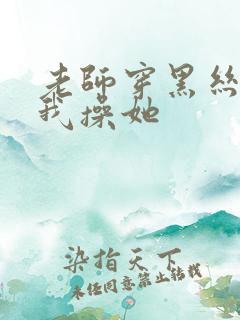 老師穿黑絲
我操她
染指天下
未經同意禁止轉載